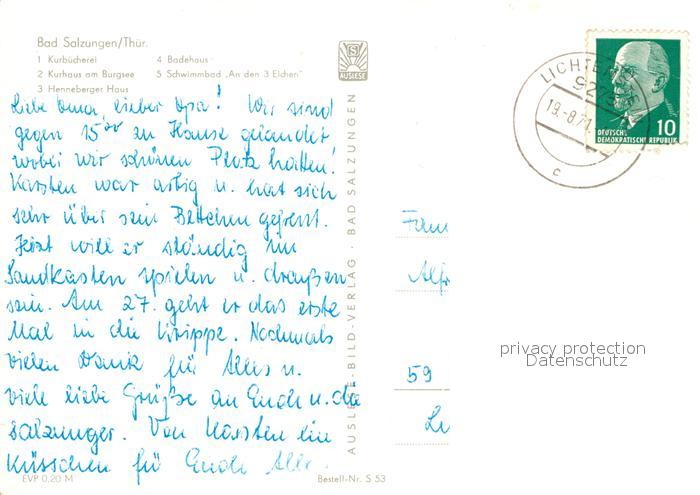 Bad Salzungen/Thür.
1 Kurbücherei
2 Kurhaus am Burgsee
3 Henneberger Haus
4 Badehaus
5 Schwimmbad „An den 3 Eichen"
S
AUSLESE
Liebe Oma, lieber Opa! Wir sind
gegen 15⁰⁰ zu Hause gelandet
wobei wir schönen Platz hatten!
Karsten war artig u. hat sich
sehr über sein Bettchen gefreut.
Jetzt will er ständig im
Sandkasten spielen u. draußen
sein. Am 27. geht er das erste
Mal in die Krippe. Nochmals
vielen Dank für Alles u.
viele liebe Grüße an Euch u. die
Salzunger. Von Karsten ein
Küsschen für Euch Alle.
EVP 0,20 M
Bestell-Nr. S 53
AUSLESE-BILD-VERLAG · BAD SALZUNGEN
19.-8.71
c
DEUTSCHE
DEMOKRATISCHE REPUBLIK
10
Fam
Alfr
59
privacy protection
Datenschutz